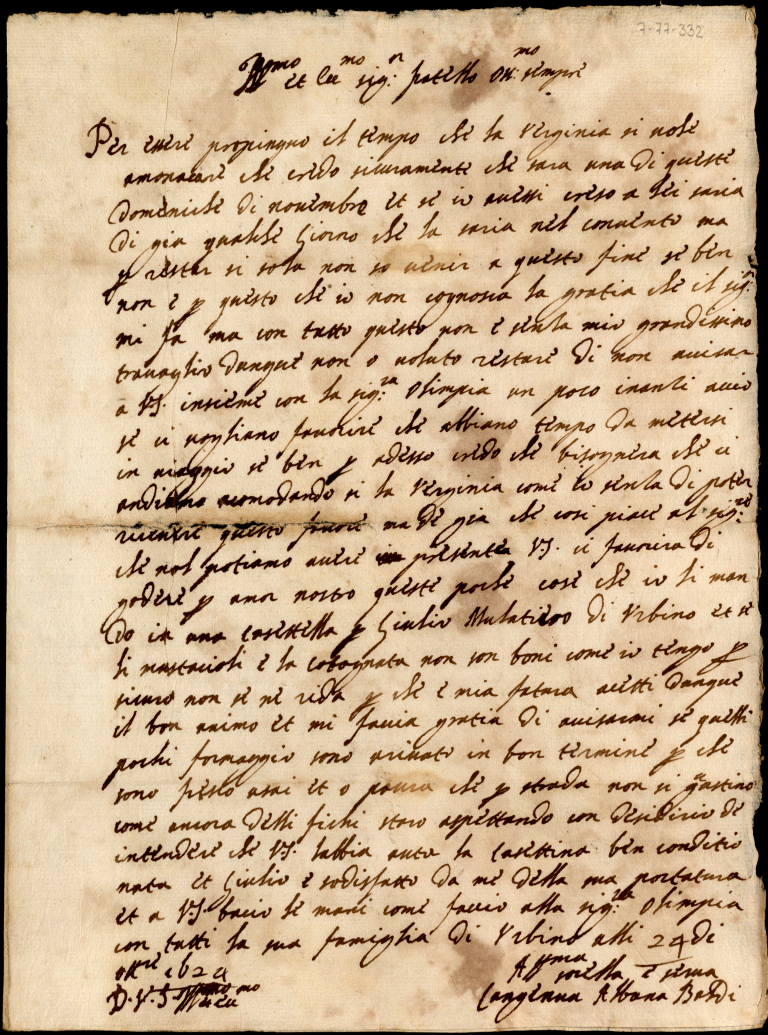 7-77-332
Ill.mo et Ecc.mo sig.r fratello oss.mo sempre
Per essere propinquo il tempo che la Verginia si vole
amonacare che credo sicuramente che sara una di queste
Domeniche di novembre et se io avessi creso a lei saria
di gia qualche giorno che la saria nel convento ma
p restar si sola non so venir a questo fine se ben
non è p questo che io non cognosca la gratia che il sig.r
mi fa ma con tutto questo non è senza mio grandissimo
travaglio dunque non o voluto restare di non avisar
a VS. insieme con la sig.ra Olimpia un poco inanzi acciò
se ci vogliano favorire che abbiano tempo da metersi
in viaggio se ben p adesso credo che bisognera che ci
andiamo acomodando si la Verginia come io senza di poter
ricevere questo favore ma de gia che cosi piace al sig.re
che nol potiamo avere presente VS. ci favorira di
godere p amor nostro queste poche cose che io li man
do in una casettella p Giulio Mulatiero di Urbino et se
li mostacioli e la cotognata non son boni come io tengo p
sicuro non se ne rida p che è mia fatura acetti dunque
il bon animo et mi facia gratia di avisarmi se quelli
pochi formaggio sono arivato in bon termine p che
sono freschi asai et o paura che p strada non si guastino
come ancora delli fichi staro aspettando con desiderio de
intendere che VS. habbia auto la casettina ben conditio
nata et Giulio è sodisfatto da me della sua portatura
et a VS. bacio le mani come faccio alla sig.ra Olimpia
con tutti la sua famiglia di Urbino alli 24 di
ott.re 1624
D. V. S. Ill.ma
Aff.ma sorella e serva
Albana Bardi